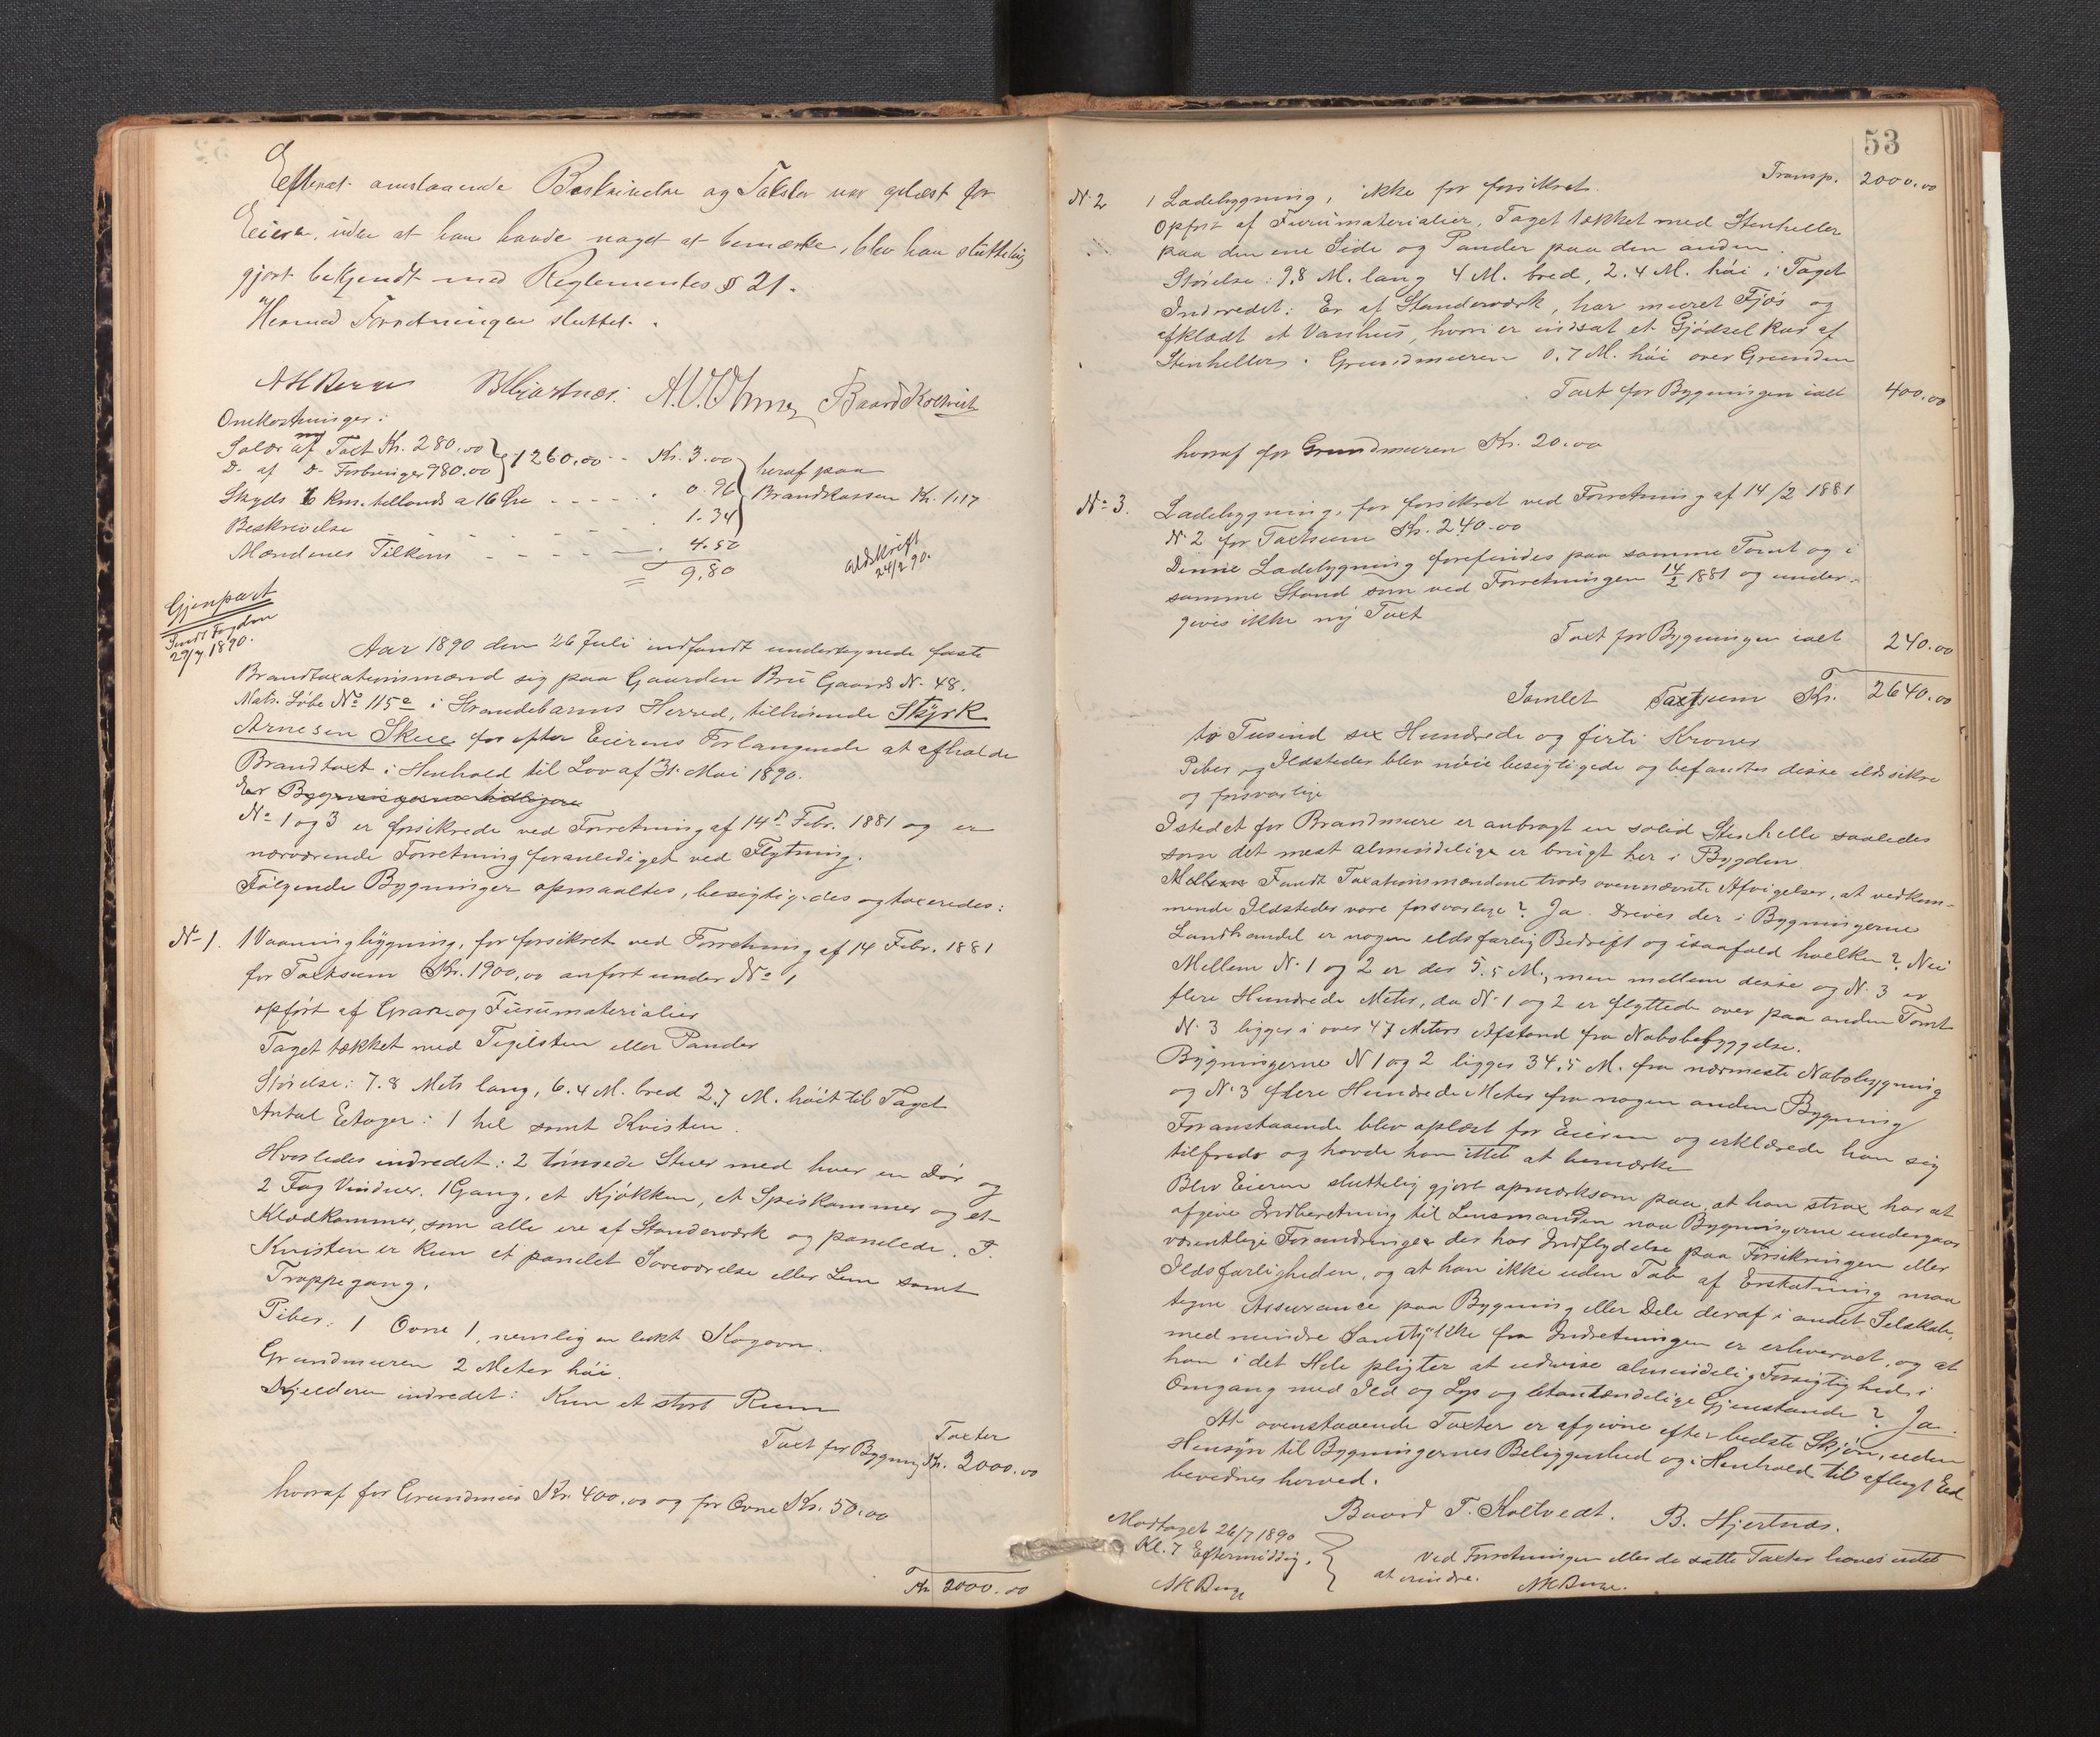 Efterat anstaaende Beskrivelse og Takster var oplæst for
Eieren, uden at han havde noget at bemærke, blev han sluttelig
gjort bekjendt med Reglementes § 21.
Hermed Forretningen sluttet.
B Hjertnæs. Baard Koltvedt
Omkostninger:
Salær af Taxt Kr. 280.00 } 1260.00 - Kr. 3.00 } heraf paa
Do af Do Forbringer 980.00
Skyds 6 Km. tillands a 16 Øre - - - - - . 0.96 Brandkassen Kr. 1,17
Beskrivelse - - - 1.34
Mændenes Tilkom - - - - 4.50
9,80
Udskrift
24/2 90.
Gjenpart
Sendt Fogden
29/7 1890.
Aar 1890 den 26 Juli indfandt undertegnede faste
Brandtaxationsmænd sig paa Gaarden Bru Gaards N. 48.
Matr. Løbe No 115a i Strandebarms Herred, tilhørende Styrk
Arnesen Skue for efter Eierens Forlangende at afholde
Brandtaxt i Henhold til Lov af 31. Mai 1890.
Er Bygningerne tidligere
No 1 og 3 er forsikrede ved Forretning af 14de Febr. 1881 og er
nærværende Forretning foranlediget ved Flytning.
Følgende Bygninger opmaaltes, besigtigedes og taxeredes:
No 1. 1 Vaaningbygning, før forsikret ved Forretning af 14 Febr. 1881
for Taxtsum Kr. 1900,00 anført under No 1
opført af Gran og Furumaterialier
Taget tækket med Teglsten eller Pander
Størelse: 7.8 Metr lang, 6.4 M. bred 2.7 M. høit til Taget
Antal Etager: 1 hel samt Kvisten.
Hvorledes indredet: 2 tømrede Stuer med hver en Dør og
2 Fag Vinduer. 1 Gang, et Kjøkken, et Spiskammer og et
Klædkammer, som alle ere af Standerværk og panelede. I
Kvisten er kun et panelet Soveværelse eller Lem samt
Trappegang.
Piber: 1 Ovne 1, nemlig en lukt Kogovn.
Grundmuren 2 Meter høi.
Kjelderen indredet: Kun et stort Rum
Taxter
Taxt for Bygning Kr. 2000.00
hvoraf for Grundmur Kr. 400.00 og for Ovne Kr. 50.00
Kr. 2000.00
53
Transp. 2000.00
N. 2 1 Ladebygning, ikke før forsikret.
Opført af Furumaterialier, Taget tækket med Stenheller
paa den ene Side og Pander paa den anden.
Størelse: 9,8 M. lang 4 M. bred, 2.4 M. høi i Taget
Indredet: Er af Standerværk, har muret Fjøs og
afklædt et Vanhus, hvori er indsat et Gjødselkar af
Stenheller. Grundmuren 0.7 M. høi over Grunden
Taxt for Bygningen ialt 400.00
hvoraf for Grundmuren Kr. 20.00
No 3. Ladebygning, før forsikret ved Forretning af 14/2 1881
N. 2 for Taxtsum Kr. 240.00
Denne Ladebygning forefindes paa samme Tomt og i
samme Stand som ved Forretningen 14/2 1881 og under-
gives ikke ny Taxt
Taxt for Bygningen ialt 240.00
Samlet Taxtsum Kr. 2640.00
to Tusind sex Hundrede og førti Kroner
Piber og Ildsteder blev nøie besigtigede og befandtes disse ildsikre
og forsvarlige
Istedet for Brandmure er anbragt en solid Stenhelle saaledes
som det mest almindelige er brugt her i Bygden
Mellem Fandt Taxationsmændene trods ovennævnte Afvigelser, at vedkom-
mende Ildsteder vare forsvarlige? Ja. Drives der i Bygningerne
Landhandel er nogen ildsfarlig Bedrift og isaafald hvilken? Nei
Mellem N. 1 og 2 er der 5.5 M., men mellem disse og N. 3 er
flere Hundrede Meter, da N. 1 og 2 er flyttede over paa anden Tomt
N. 3 ligger i over 47 Meters Afstand fra Nabobebyggelse.
Bygningerne N 1 og 2 ligger 34.5 M. fra nærmeste Nabobygning
og N. 3 flere Hundrede Meter fra nogen anden Bygning
Foranstaaende blev oplæst for Eieren og erklærede han sig
tilfreds og havde han intet at bemærke
Blev Eieren sluttelig gjort opmærksom paa, at han strax har at
afgive Indberetning til Lensmanden naar Bygningerne undergaar
væsentlige Forandringer der har Indflydelse paa Forsikringen eller
Ildsfarligheden, og at han ikke uden Tab af Erstatning maa
tegne Assurance paa Bygning eller Dele deraf i andet Selskab,
med mindre Samtykke fra Indretningen er erhvervet, og at
han i det Hele pligter at udvise almindelig Forsigtighed i
Omgang med Ild og Lys og letantændelige Gjenstande? Ja.
At ovenstaaende Taxter er afgivne efter bedste Skjøn, uden
Hensyn til Bygningernes Beliggenhed og i Henhold til aflagt Ed
bevidnes herved.
Baard T. Koltvedt. B. Hjertnæs.
Modtaget 26/7 1890
Kl. 7 Eftermiddag.
Ved Forretningen eller de satte Taxter haves intet
at erindre.